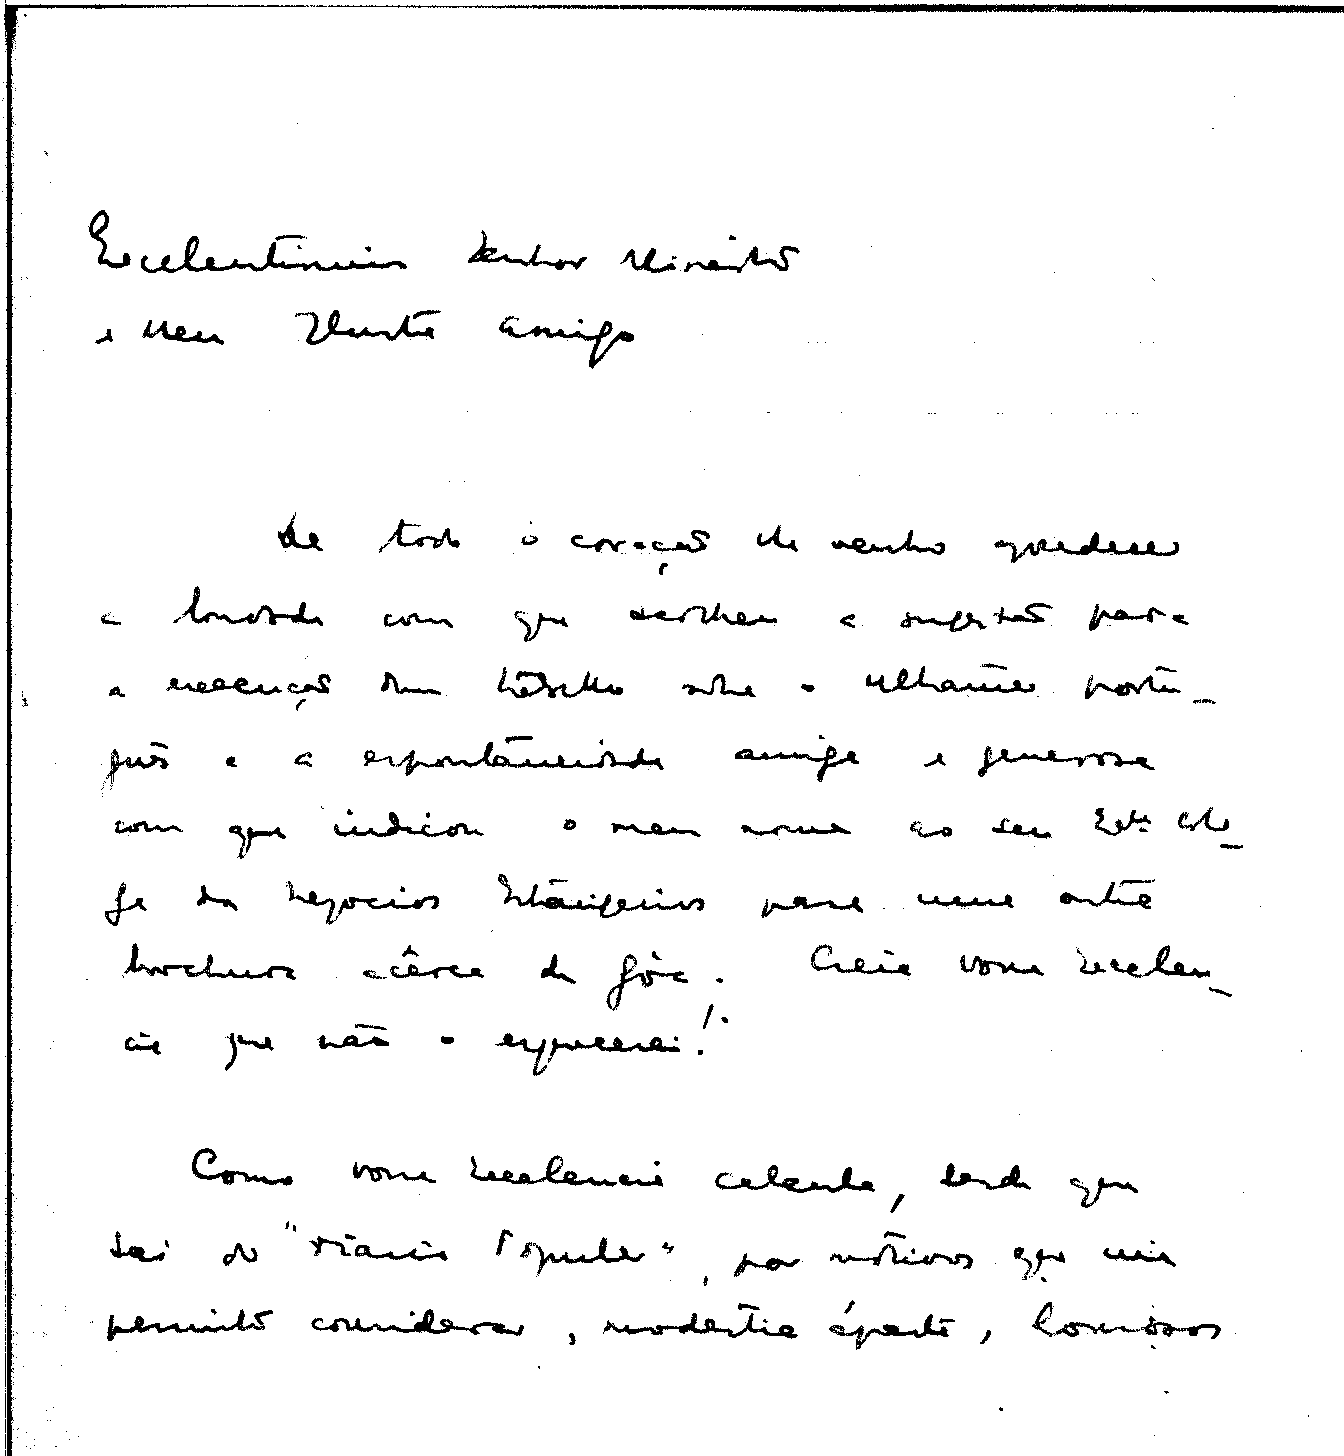 Excelentissimo Senhor Ministro
e Meu Ilustre Amigo
De todo o coração lhe venho agradecer
a bondade com que acolheu a sugestão para
a execução dum trabalho sobre o Ultramar portu-
guês e a espontâneidade amiga e generosa
com que indicou o meu nome ao seu Exº cole-
ga dos Negocios Estrangeiros para uma outra
brochura acêrca de Gôa. Creia Vossa Excelen-
cia que não o esquecerei!
Como Vossa Excelencia calcula, desde que
sai do "Diario Popular", por motivos que me
permito considerar, modestia áparte, honrosos